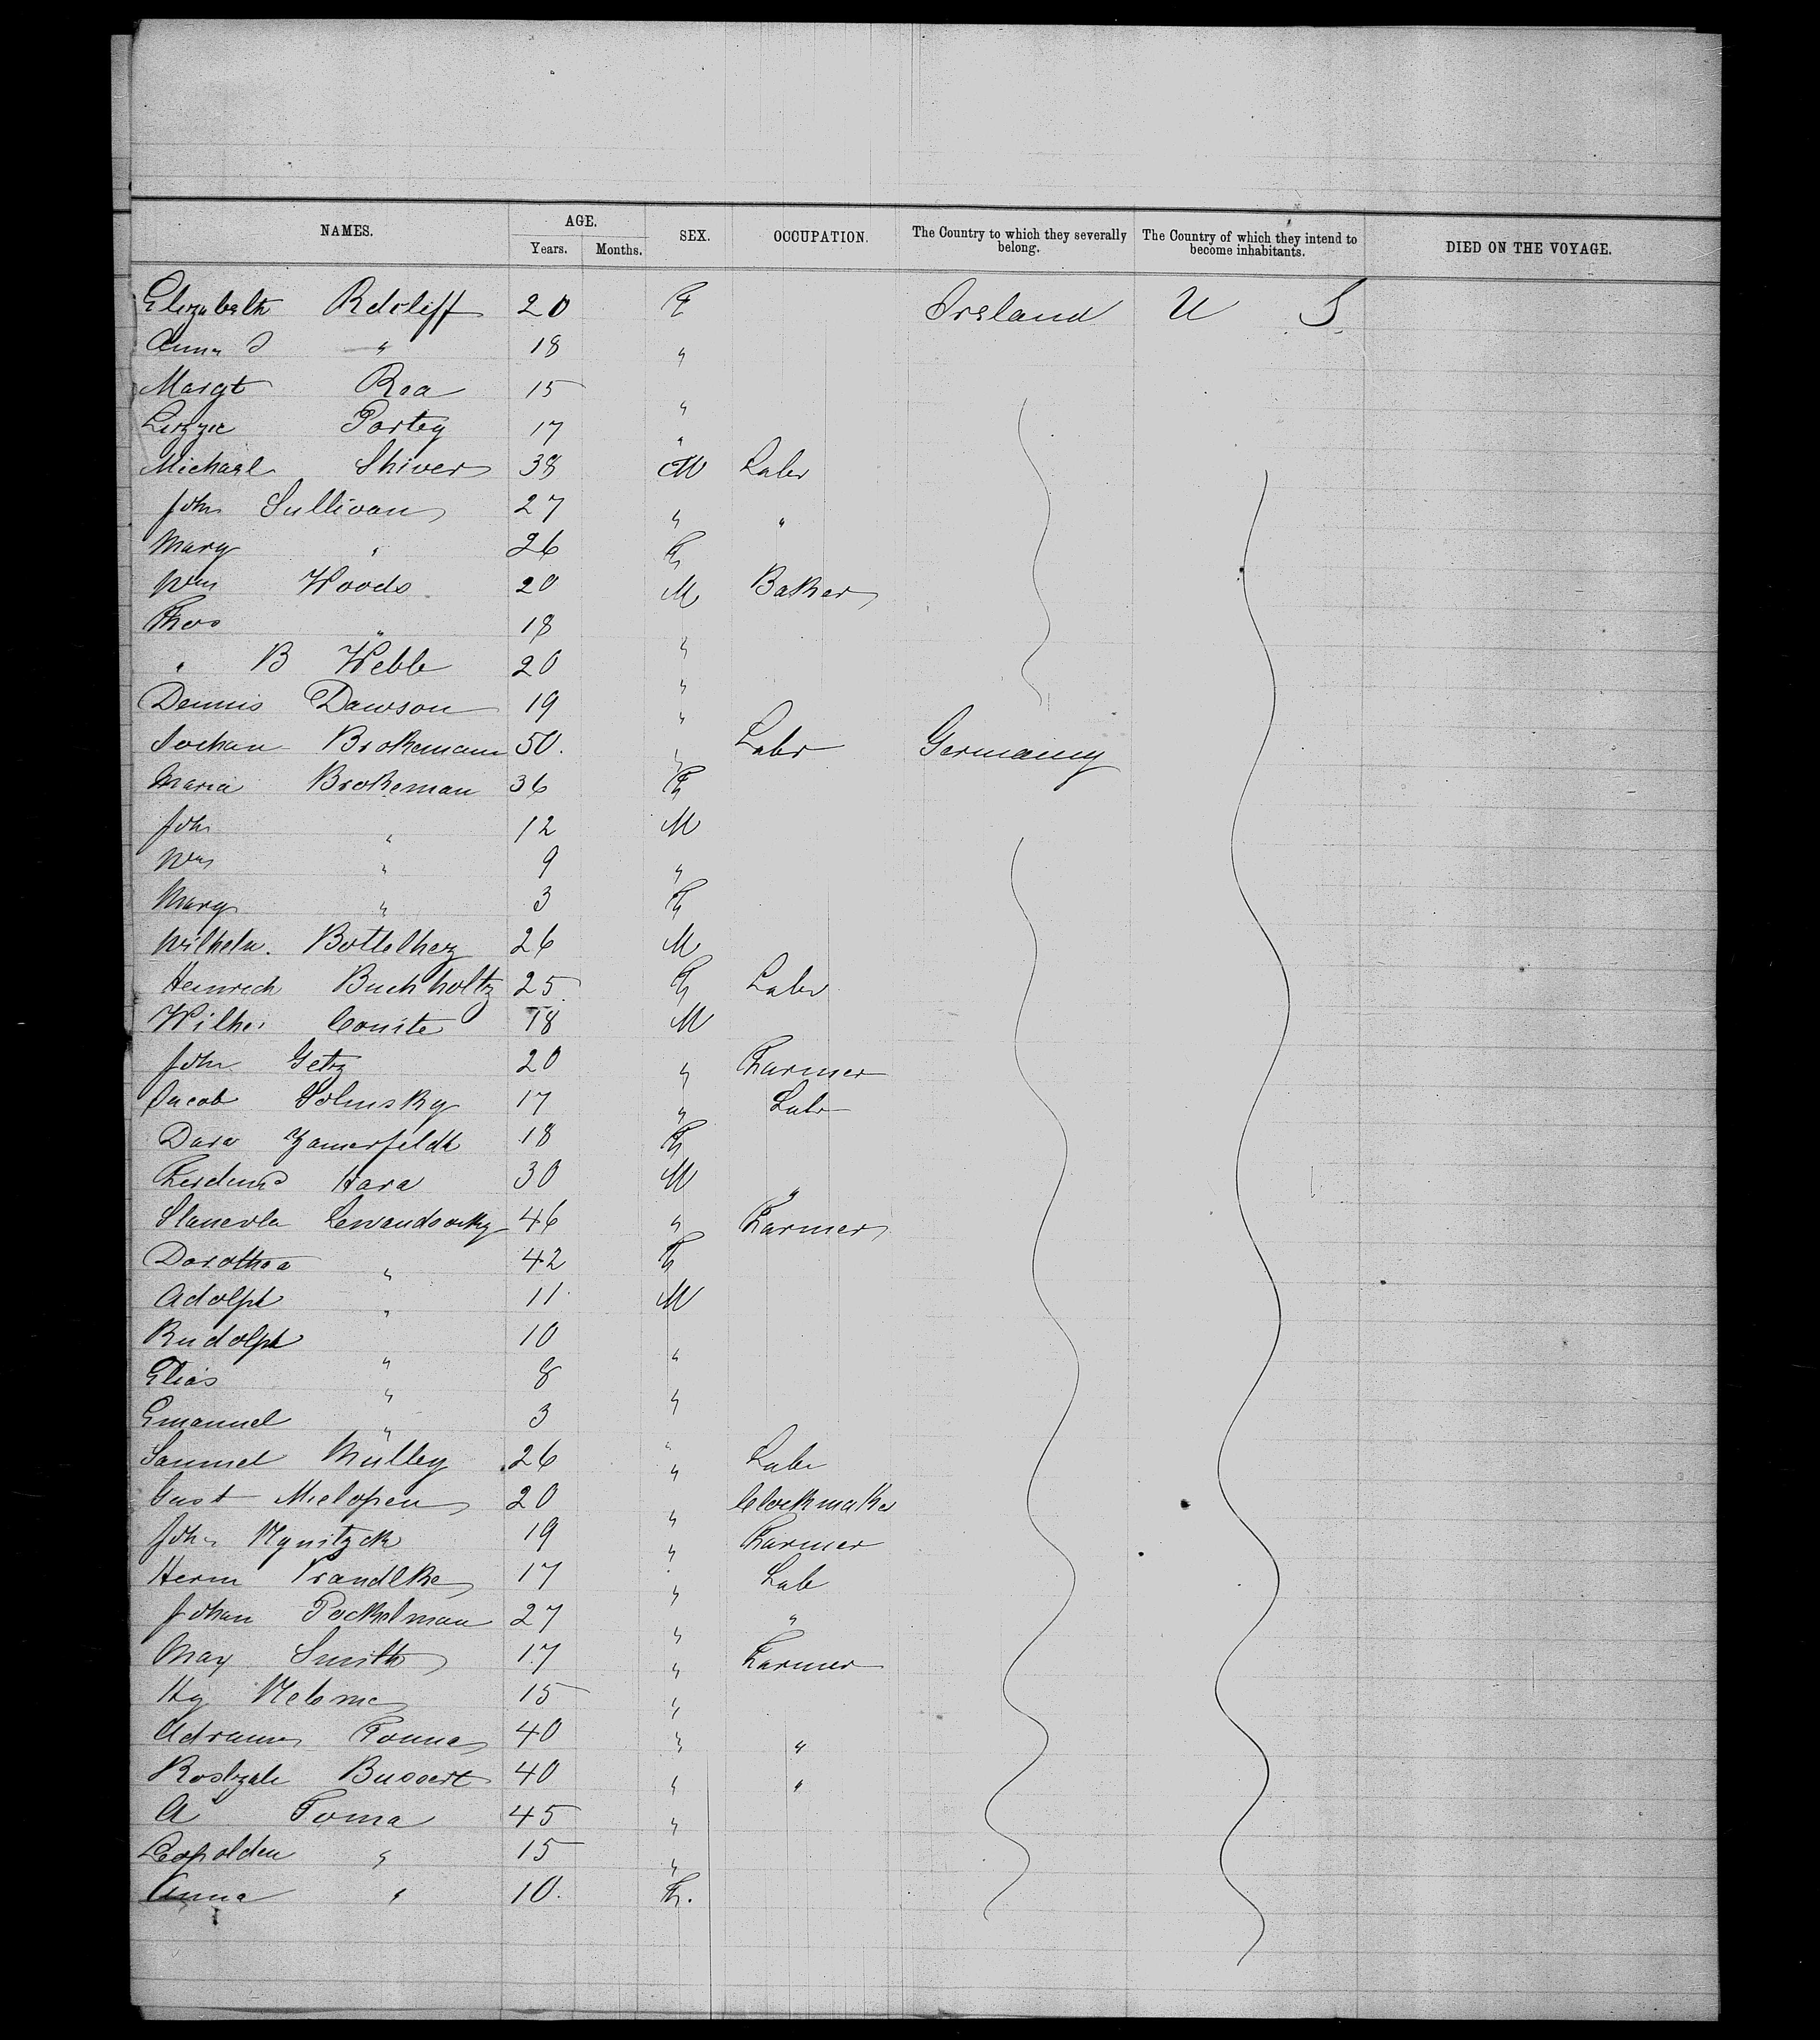 NAMES. AGE. SEX. OCCUPATION. The Country to which they severally belong. The Country of which they intend to become inhabitants. DIED ON THE VOYAGE.
Years. Months.
Elizabeth Rdcliff 20 F Ireland U S
Anna J " 18 "
Margt Rea 15 "
Lizzie Portey 17 "
Michael Shivers 38 M Labr
John Sullivan 27 " "
Mary " 26 F
Wm Woods 20 M Baker
Thos " 18 "
" B Webb 20 "
Dennis Dawson 19 "
Jochan Brokemann 50. " Labr Germany
Maria Brokeman 36 F
John " 12 M
Wm " 9 "
Mary " 3 F
Wilhelm. Bottelherz 26 M
Heinrich Buchholtz 25 F Labr
Wilh. Conite 18 M
John Getz 20 " Farmer
Jacob Solmsky 17 " Labr
Dora Zamerfeldt 18 F
Ferdind Hara 30 M "
Lewandowsky 46 " Farmer
Dorothea " 42 F
Adolph " 11 M
Rudolph " 10 "
Elias " 8 "
Emanuel " 3 "
Samuel Mulley 26 " Labr
Gust Mielopen 20 " Clockmaker
John Nynitzck 19 " Farmer
Herm Prandlke 17 " Lab
Johan Pockelman 27 " "
Max Smith 17 " Farmer
Hy 15 "
Tonna 40 " "
Bussert 40 " "
A Toma 45 "
Leopolden " 15 "
Anna " 10. F.